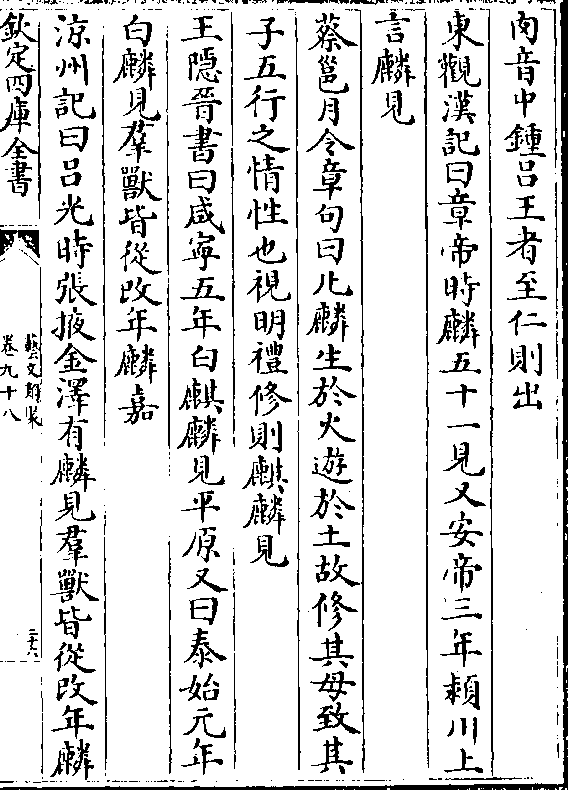 肉音中鍾呂王者至仁則出
東觀漢記曰章帝時麟五十一見又安帝三年潁川上
言麟見
蔡邕月令章句曰凡麟生於火遊於土故修其母致其
子五行之情性也視明禮修則麒麟見
王隠晉書曰咸寧五年白麒麟見平原又曰泰始元年
白麟見羣獸皆從改年麟嘉
涼州記曰呂光時張掖金澤有麟見羣獸皆從改年麟
欽定四庫全書
藝文類聚
卷九十八
二十六